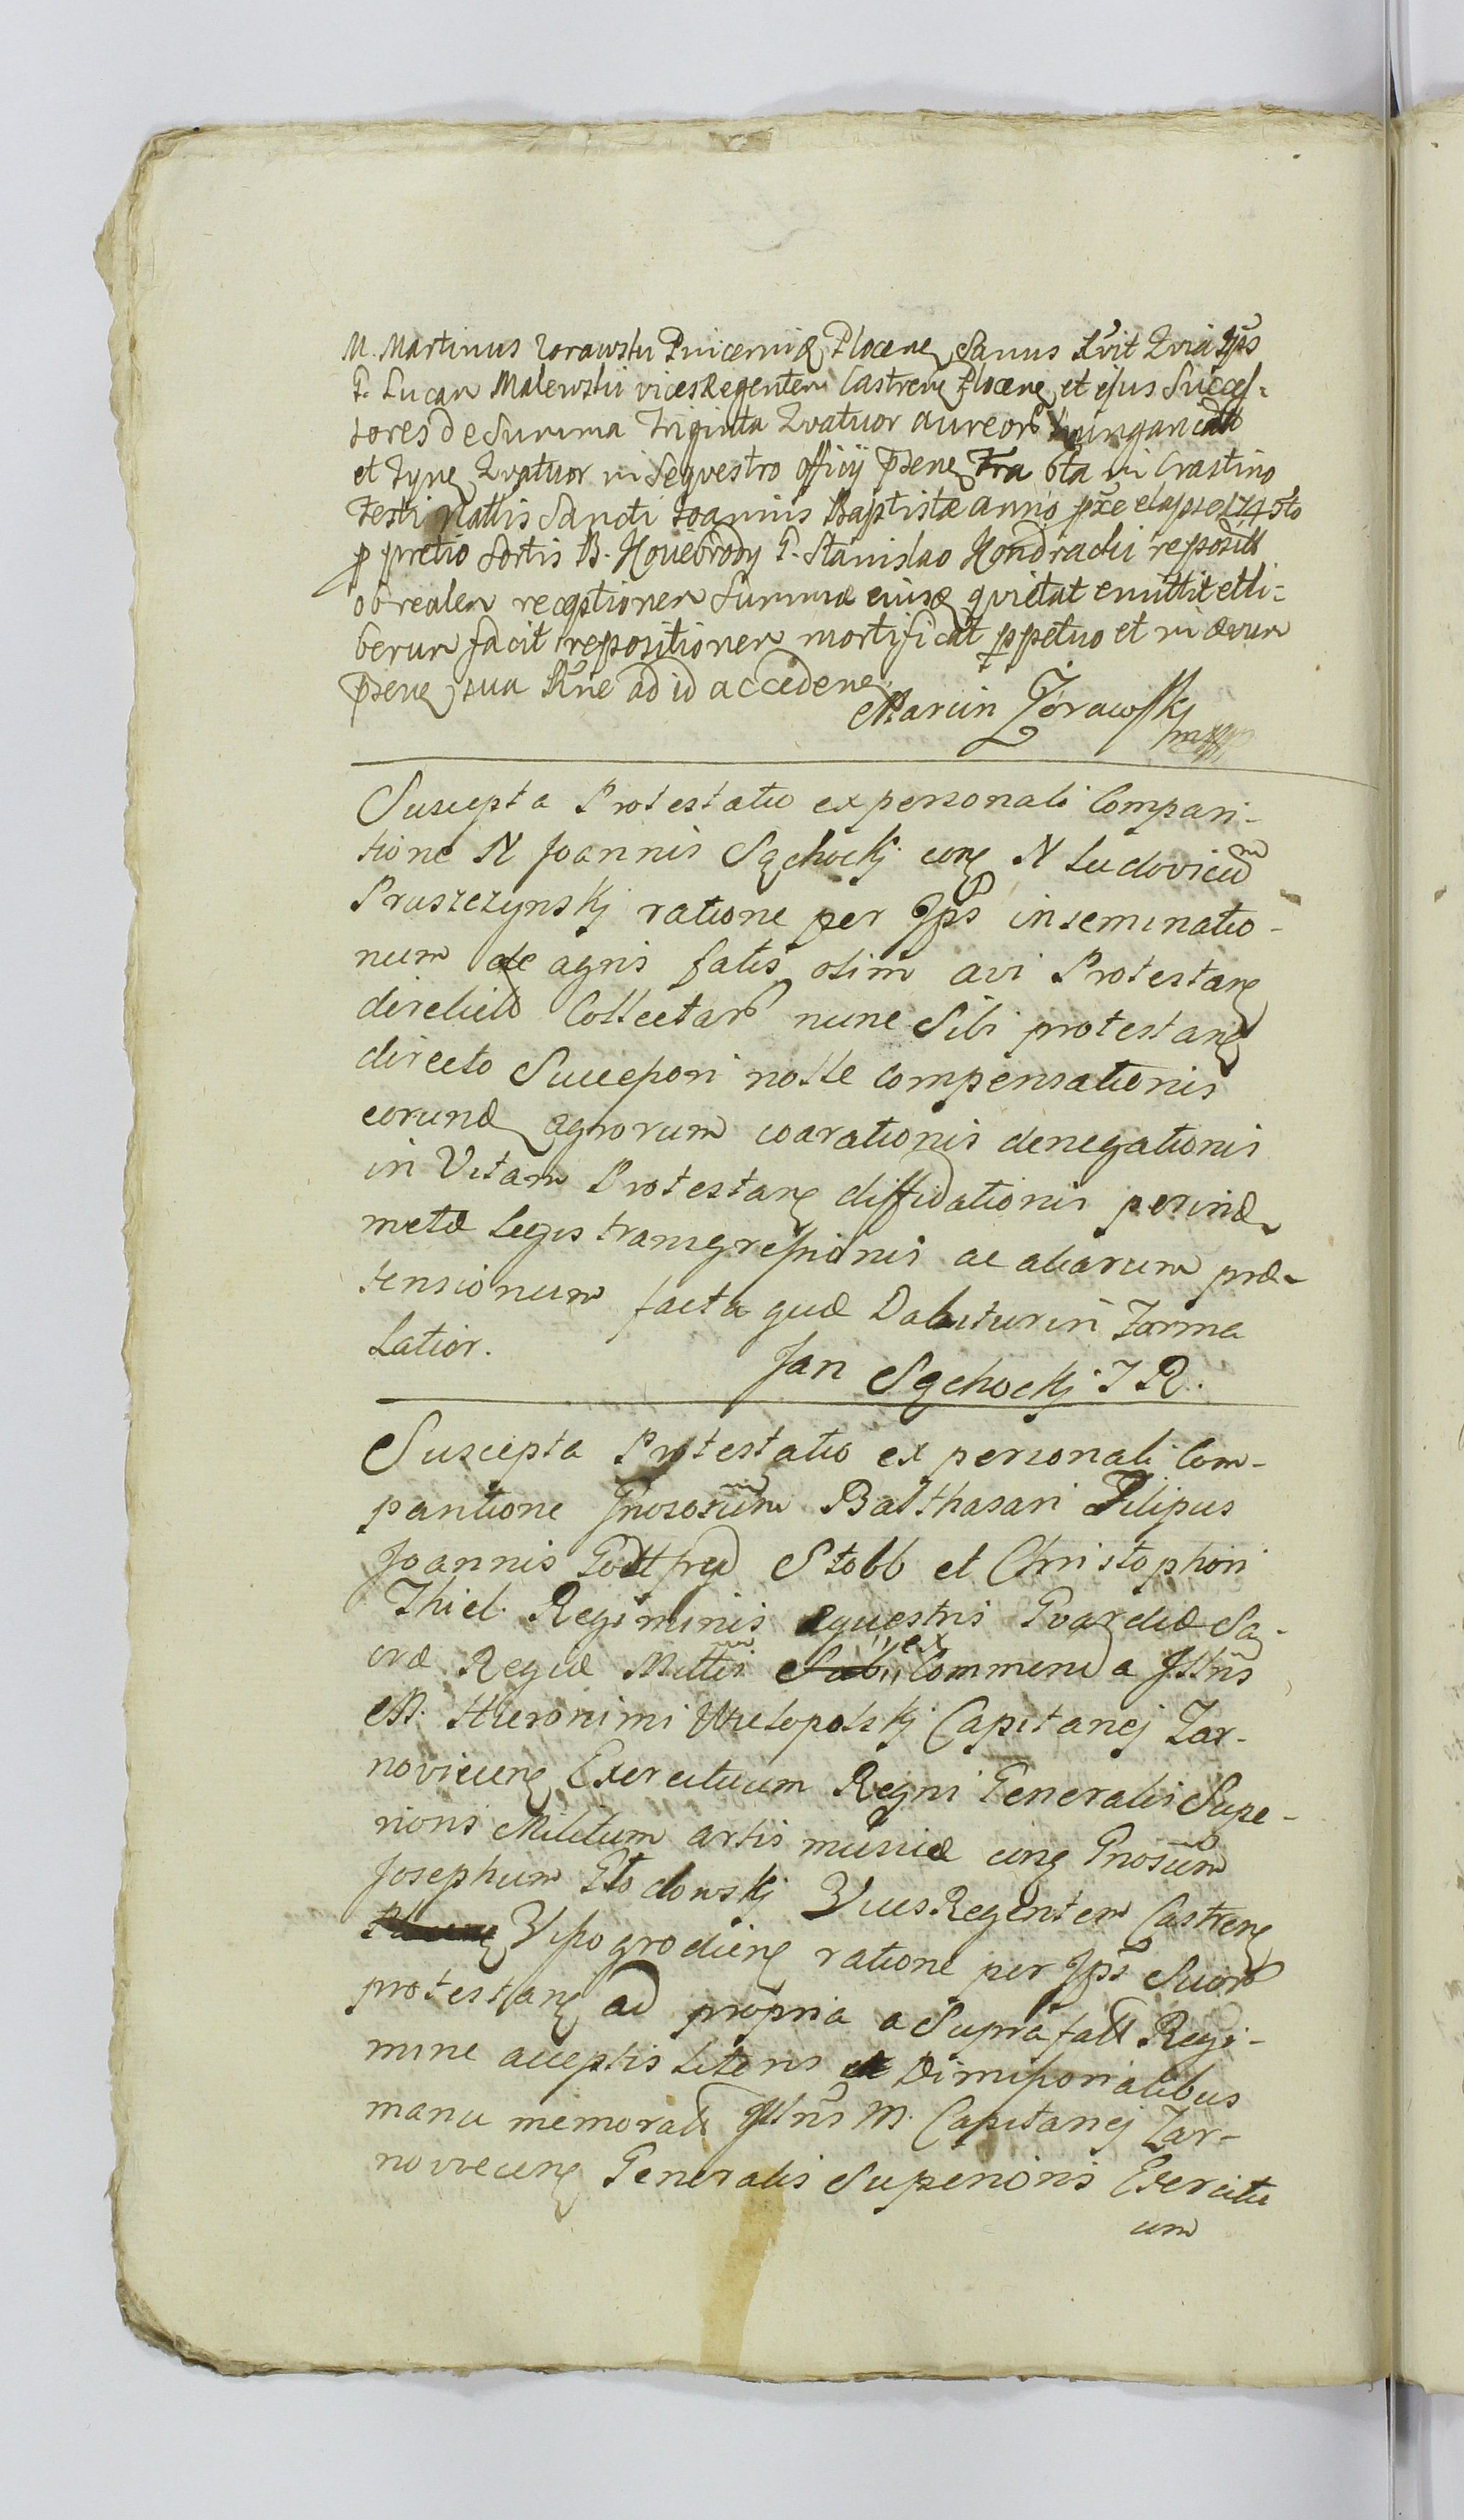 M. Martinus Zorawski Pincerni& Plocen Sanus Rvit Quia Ips
G. Lucan Malewski vicesRegentem Castren Plocen et ejus Succes-
sores de Summa Triginta Quatuor aureor Hungarical
et Tynf Quatuor in Seqvestro officij psen Fra 6ta in Crastino
Festi Nattis Sancti Joannis Baptistæ anno pxe elapso 1745to
p pretio Sortis B. Nowebrody G. Stanislao Kondracki reposit
ob realem receptionem Summæ eiusd qvietat emittit et li-
berum facit repositionem mortificat pperpetuo et in ævum
psen sua Rne ad id acceden
Marcin Żorawskj
mpp
Suscepta Protestatio ex personali Compari-
tione N Joannis Sąchockj con N Ludovicum
Pruszczynskj ratione per Ips inseminatio-
num de agris satis olim avi Protestan
derelict Collectar nunc Sibi protestan
directo Successori nolle compensationis
eorund agrorum coarationis denegationis
in Vitam Protestan diffidationis perind
metæ Legis transgressionis ac aliarum præ-
tensionum facta quæ Dabitur in Forma
Latior.
Jan Sąchockj I R.
Suscepta Protestatio ex personali Com-
paritione Gnosorum Balthasari Filipus
Joannis Gottfryd Stobb et Christophori
Thiel Regiminis Equestris Gvardiæ Sa-
cræ Regiæ Mttis ex Commenda Illris
M. Hieronimi Wielopolskj Capitanej Zar-
noviecen Exercituum Regni Generalis Supe-
rioris Militum artis musicæ con Gnosum
Josephum Głodowskj VicesRegentem Castren
Vyssogrodien ratione per Ips Suor
protestan ad propria a Suprafatt Regi-
mine acceptis Literis Dimissorialibus
manu memorati Illris M. Capitanej Zar-
noviecen Generalis Superioris Exercitu
um